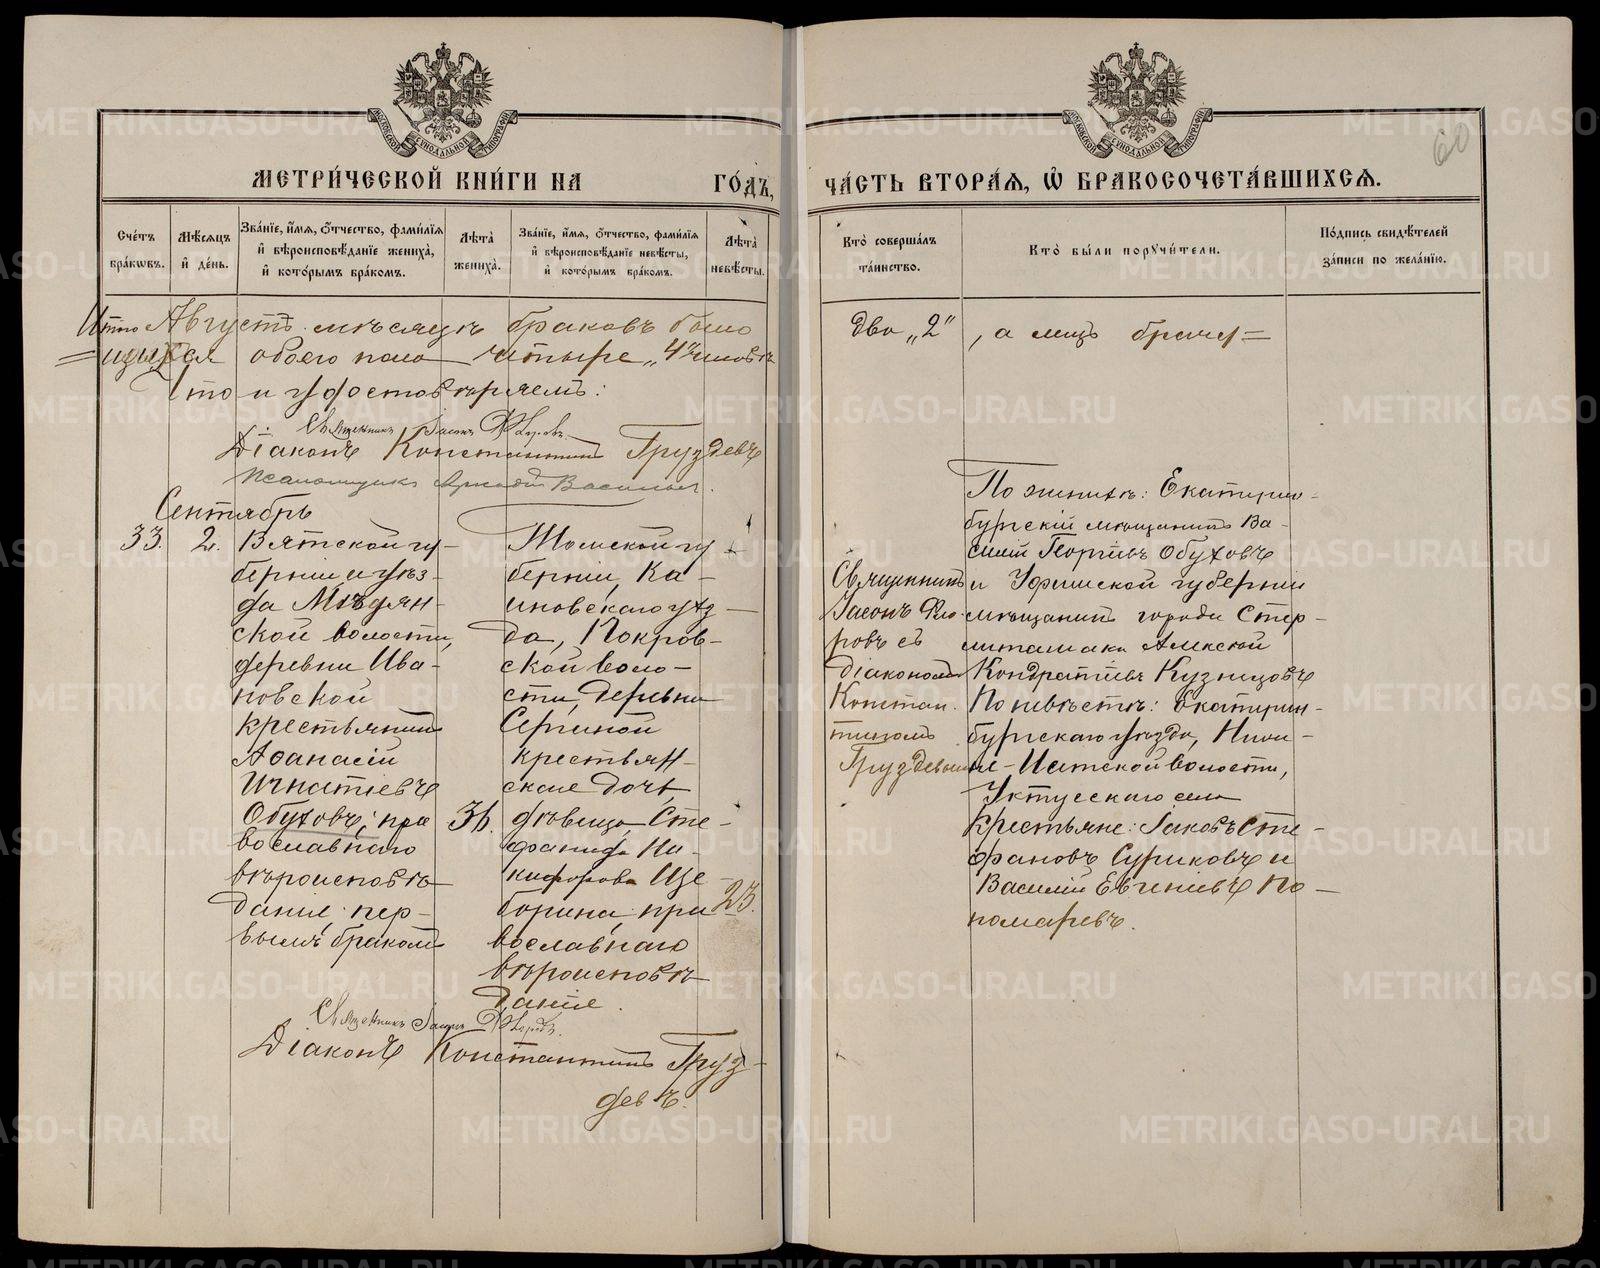 МОСКОВСКОЙ СѴНОДАЛЬНОЙ ТИПОГРАФІИ
МОСКОВСКОЙ СѴНОДАЛЬНОЙ ТИПОГРАФІИ
60
МЕТРИ́ЧЕСКОЙ КНИ́ГИ НА ГО́ДЪ, ЧА́СТЬ ВТОРА́Я, Ѽ БРАКОСОЧЕТА́ВШИХСЯ.
Сче́тъ бра́кѡвъ.
Мѣ́сяцъ и҆ де́нь.
Зва́нїе, и҆́мя, ѻ҆́тчество, фами́лїя и҆ вѣроисповѣ́данїе жениха̀, и҆ кото́рымъ бра́комъ.
Лѣ́та̀ жениха̀.
Зва́нїе, и҆́мя, ѻ҆́тчество, фами́лїя и҆ вѣроисповѣ́данїе невѣ́сты, и҆ кото́рымъ бра́комъ.
Лѣ́та̀ невѣ́сты.
Кто̀ соверша́лъ та́инство.
Кто̀ бы́ли порꙋчи́тели.
По́дпись свидѣ́телей за́писи по жела́нїю.
Итого Августѣ мѣсяцѣ браковъ было два „2“, а лицъ брачу=
=щихся обоего пола четыре „4“ человѣк
Что и удостовѣряемъ:
Священникъ Іасонъ Флоровъ.
Діаконъ Константинъ Груздевъ
Псаломщикъ Аркадій Васильев.
Сентябрь
33.
2.
Вятской гу-
берніи и уѣз-
да Мѣдян-
ской волости,
деревни Ива-
новской
крестьянинъ
Аѳанасій
Игнатіевъ
Обуховъ; пра
вославнаго
вѣроисповѣ-
данія; пер-
вымъ бракомъ
36.
Томской гу
берніи, Ка-
иновскаго уѣз-
да, Покров-
ской воло-
сти, деревни
Сергиной
крестьян-
ская дочь,
дѣвица, Сте-
фанида Ни-
кифорова Ще
борина, пра
вославнаго
вѣроисповѣ
данія.
23.
Священникъ
Іасонъ Фло-
ровъ съ
діакономъ
Констан.
тиномъ
Груздевымъ
По женихѣ: Екатерин-
бургскій мѣщанинъ Ва-
силій Георгіевъ Обуховъ
и Уфимской губерніи
мѣщанинъ города Стер-
литамака Алексѣй
Кондратіевъ Кузнецовъ
По невѣстѣ: Екатерин-
бургскаго уѣзда, Нижн-
не-Исетской волости,
Уктусскаго села
крестьяне: Іаковъ Сте-
фановъ Суриковъ и
Василій Евгеніевъ По-
номаревъ.
Священникъ Іасонъ Флоровъ.
Діаконъ Константинъ Груз-
девъ.
METRIKI.GASO-URAL.RU